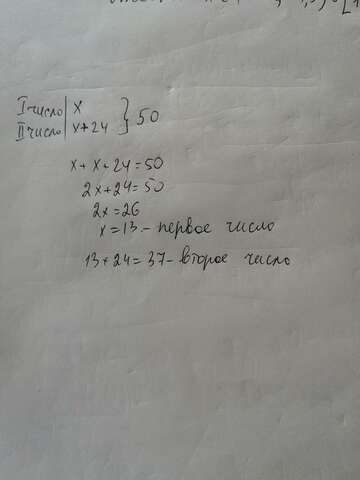 I число | x } 50
II число | x+24
x + x + 24 = 50
2x + 24 = 50
2x = 26
x = 13 - первое число
13 + 24 = 37 - второе число